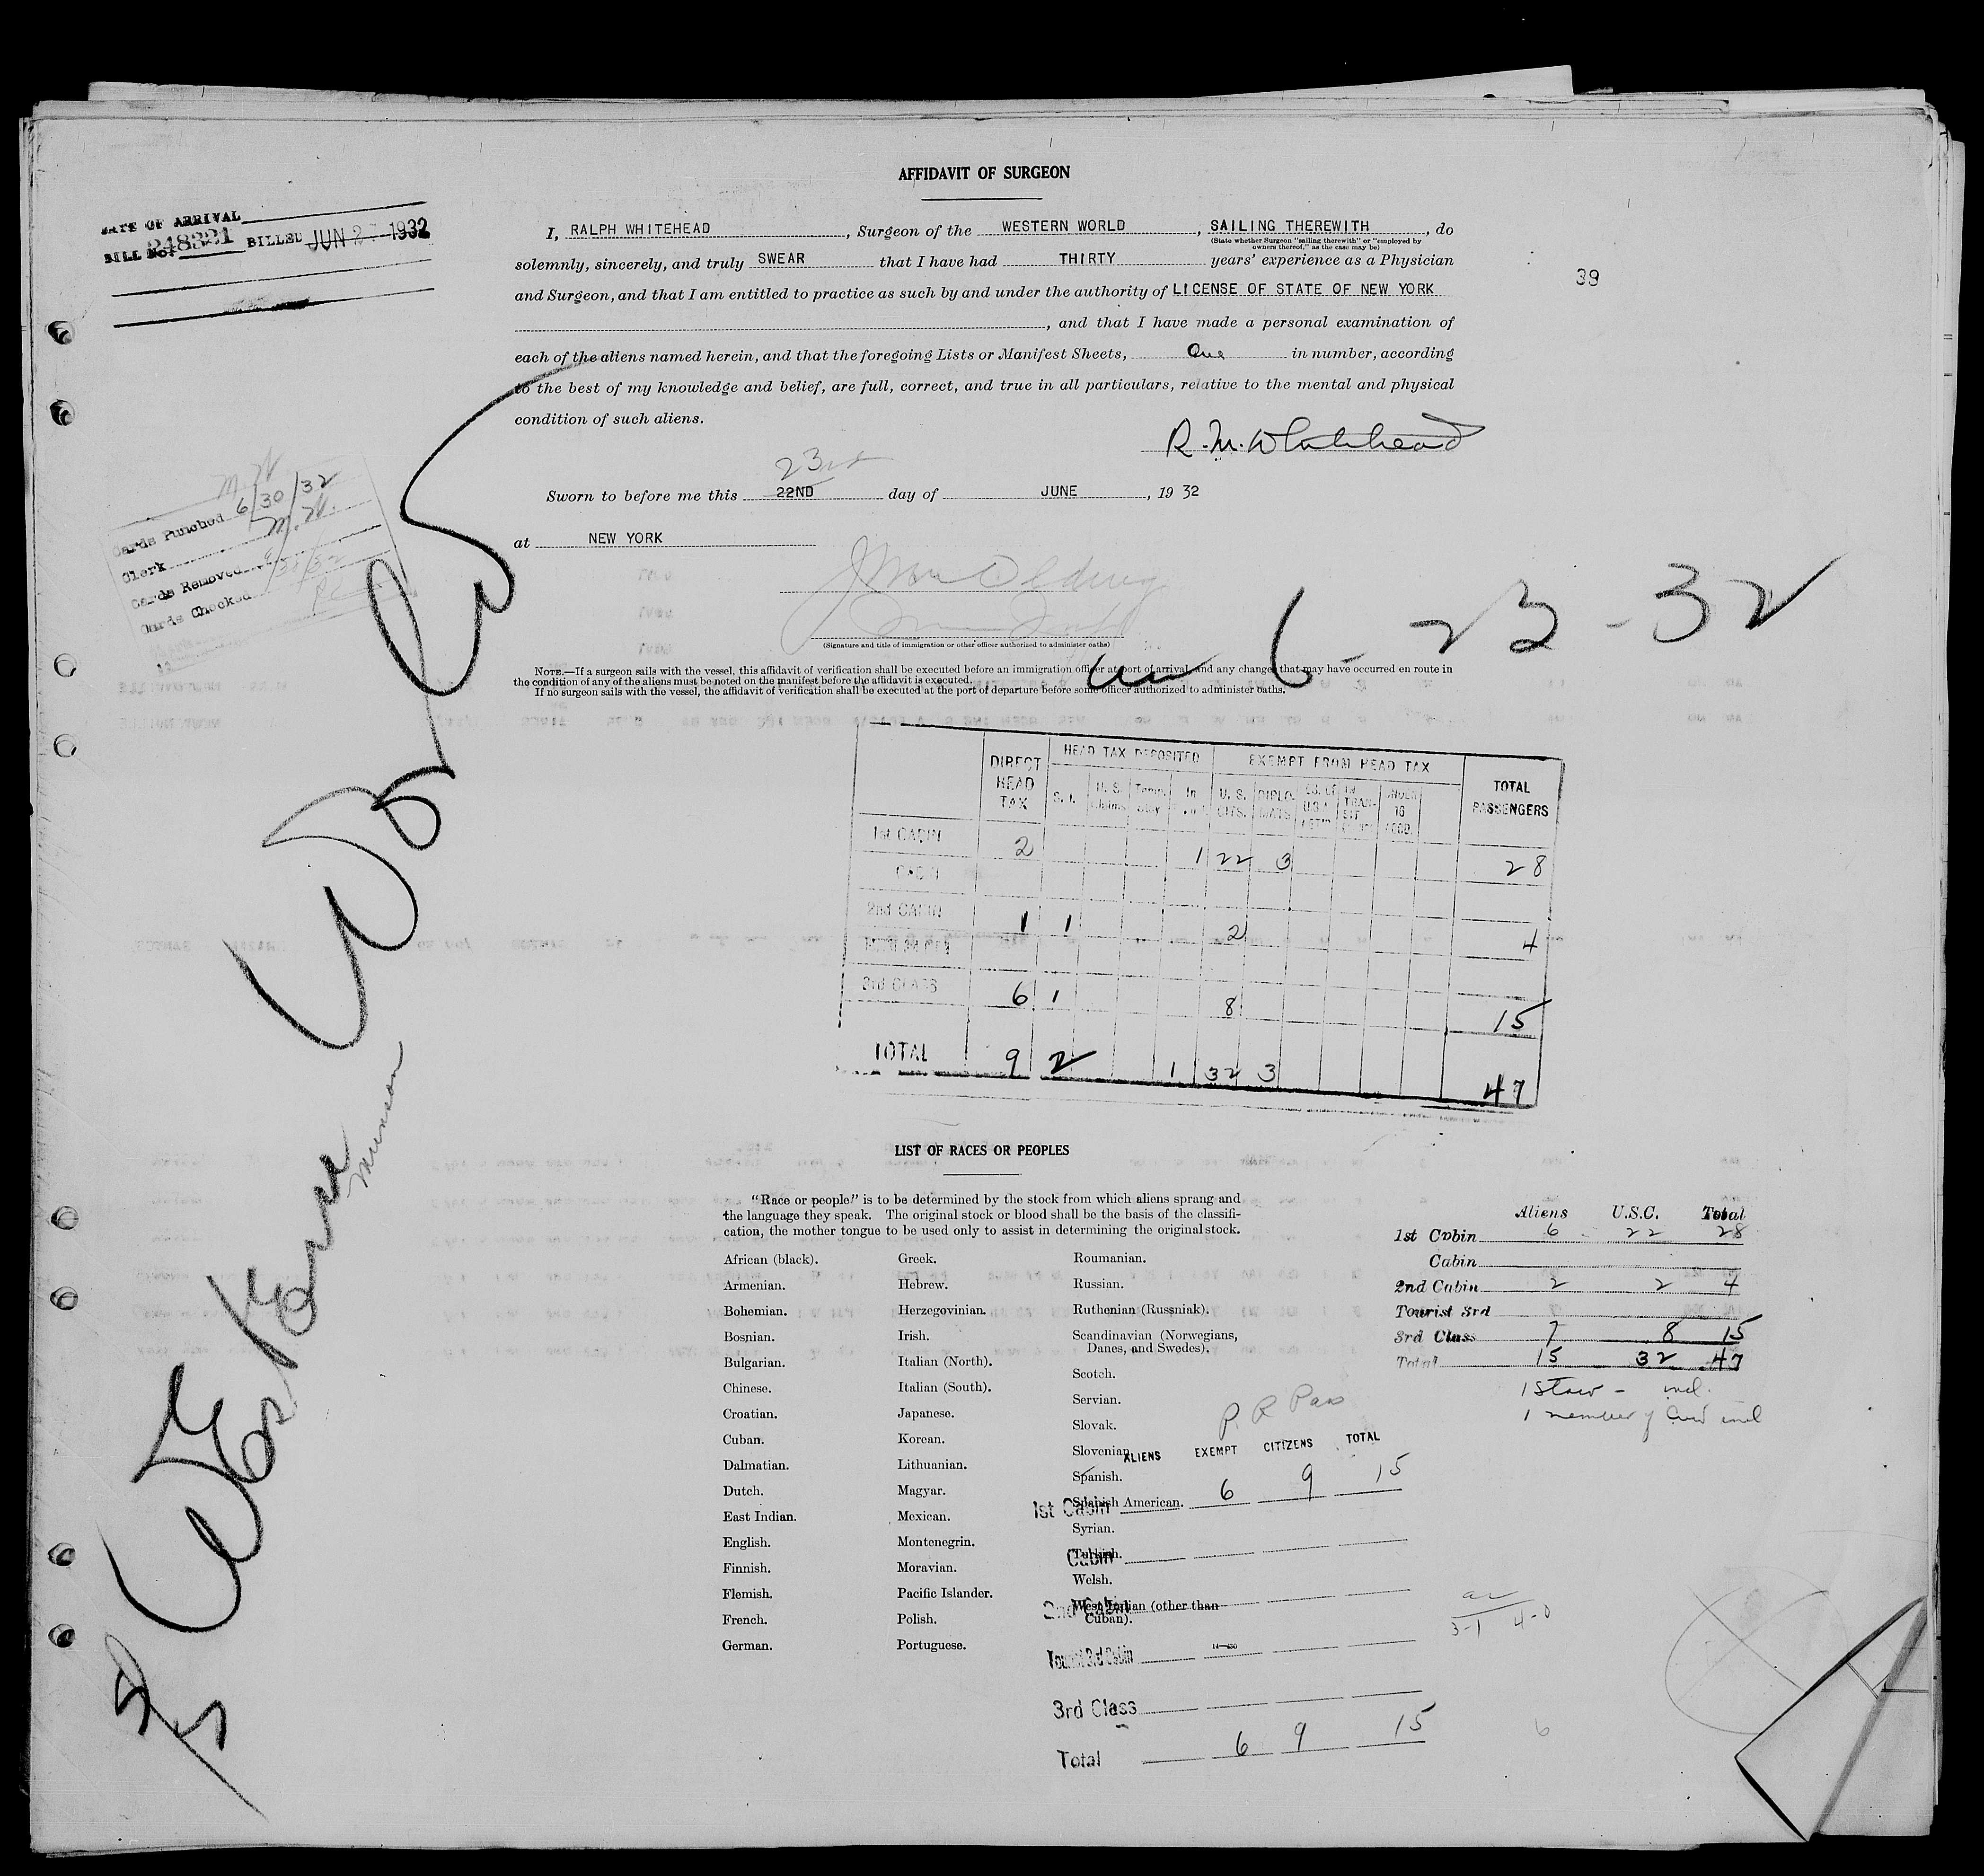 AFFIDAVIT OF SURGEON
DATE OF ARRIVAL
BILL No. 248321 BILLED JUN 2 1932
I, RALPH WHITEHEAD, Surgeon of the WESTERN WORLD, SAILING THEREWITH, do
(State whether Surgeon "sailing therewith" or "employed by
owners thereof," as the case may be)
solemnly, sincerely, and truly SWEAR that I have had THIRTY years' experience as a Physician
39
and Surgeon, and that I am entitled to practice as such by and under the authority of LICENSE OF STATE OF NEW YORK
, and that I have made a personal examination of
each of the aliens named herein, and that the foregoing Lists or Manifest Sheets, One in number, according
to the best of my knowledge and belief, are full, correct, and true in all particulars, relative to the mental and physical
condition of such aliens.
R. M. Whitehead
23rd
Sworn to before me this 22ND day of JUNE, 1932
at NEW YORK
(Signature and title of immigration or other officer authorized to administer oaths)
Cards Punched 6/30/32
Clerk M.H.
Cards Removed
Cards Checked
6-23-32
NOTE.—If a surgeon sails with the vessel, this affidavit of verification shall be executed before an immigration officer at port of arrival, and any changes that may have occurred en route in
the condition of any of the aliens must be noted on the manifest before the affidavit is executed.
If no surgeon sails with the vessel, the affidavit of verification shall be executed at the port of departure before some officer authorized to administer oaths.
Western World
Munson
DIRECT HEAD TAX HEAD TAX DEPOSITED EXEMPT FROM HEAD TAX TOTAL PASSENGERS
1st CABIN 2 1 22 3 28
CABIN
2nd CABIN 1 1 2 4
3rd CLASS 6 1 8 15
TOTAL 9 2 1 32 3 47
LIST OF RACES OR PEOPLES
"Race or people" is to be determined by the stock from which aliens sprang and
the language they speak. The original stock or blood shall be the basis of the classifi-
cation, the mother tongue to be used only to assist in determining the original stock.
African (black).
Armenian.
Bohemian.
Bosnian.
Bulgarian.
Chinese.
Croatian.
Cuban.
Dalmatian.
Dutch.
East Indian.
English.
Finnish.
Flemish.
French.
German.
Greek.
Hebrew.
Herzegovinian.
Irish.
Italian (North).
Italian (South).
Japanese.
Korean.
Lithuanian.
Magyar.
Mexican.
Montenegrin.
Moravian.
Pacific Islander.
Polish.
Portuguese.
Roumanian.
Russian.
Ruthenian (Russniak).
Scandinavian (Norwegians,
Danes, and Swedes).
Scotch.
Servian.
Slovak.
Slovenian.
Spanish.
Spanish American.
Syrian.
Turkish.
Welsh.
West Indian (other than
Cuban).
Aliens U.S.C. Total
1st Cabin 6 22 28
Cabin
2nd Cabin 2 2 4
Tourist 3rd
3rd Class 7 8 15
Total 15 32 47
1 Stow - incl.
1 member of incl
P. R Pass
ALIENS EXEMPT CITIZENS TOTAL
1st Cabin 6 9 15
Cabin
2nd Cabin
Tourist 3rd Cabin
3rd Class
Total 6 9 15
3-1 4-0
6